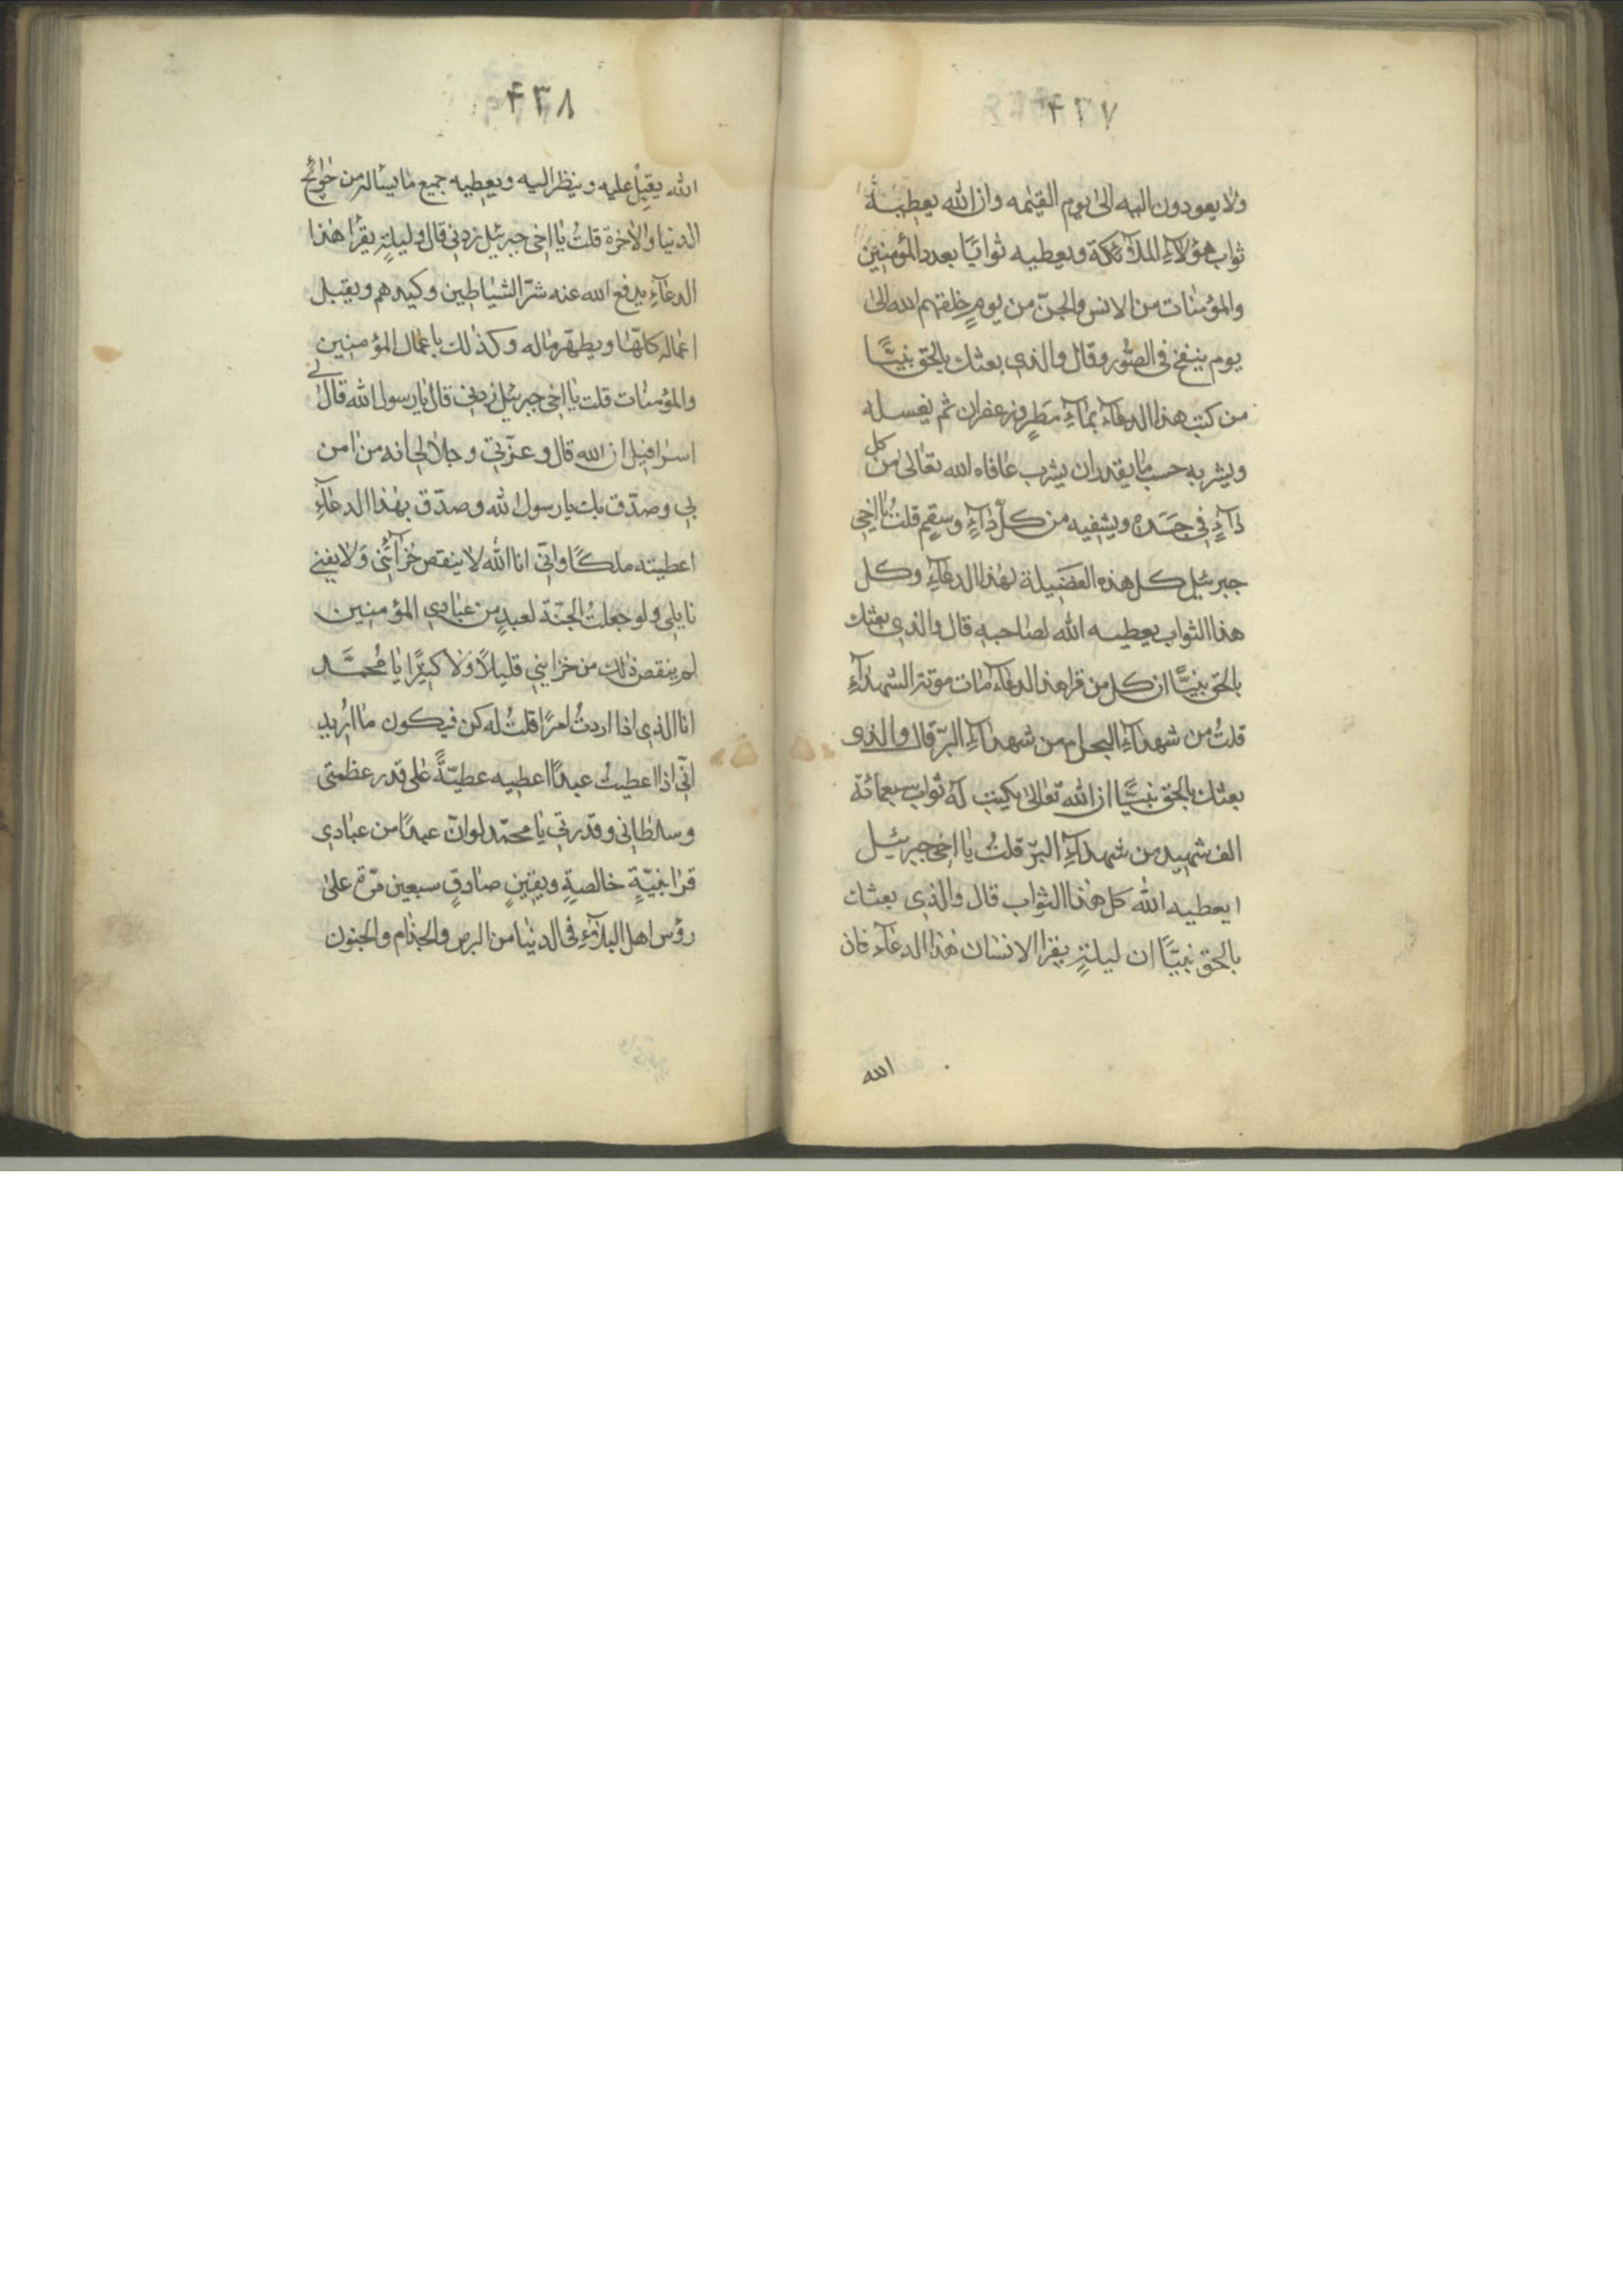 ۴۳۷
ولا يعودون اليه الى يوم القيٰمه وان الله يعطيه
ثواب هؤلاء الملآئكة ويعطيه ثوابًا بعدد المؤمنين
والمؤمنات من الانس والجنّ من يومٍ خلقهم الله الى
يوم ينفخ فى الصّور وقال والذي بعثك بالحق نبيًّا
من كتب هذا الدعآء بمآءِ مَطرٍ وزعفران ثم يغسله
ويشربه حسب ما يقدر ان يشرب عافاه الله تعالى من كل
دآءٍ في جسَده ويشفيه من كلّ دآءٍ وسقمٍ قلتُ يا اخي
جبرئيل كل هذه الفضَيلة لهذا الدعآءِ وكل
هذا الثواب يعطيه الله لصاحبه قال والذي بعثك
بالحق نبيًّا ان كل من قرا هذا الدعآء مات موتة الشهدآءِ
قلتُ من شهدآءِ البحر ام من شهدآءِ البرّ قال والذى
بعثك بالحق نبيًّا ان الله تعالى يكتب له ثواب سبعمائة
الف شهيد من شهدآءِ البرّ قلتُ يا اخى جبرئيل
ايعطيه الله كل هذا الثواب قال والذي بعثك
بالحق نبيًّا ان ليلةٍ يقرا الانسان هذا الدعآء فان
الله
۴۳۸
الله يقبل عليه وينظر اليه ويعطيه جميع ما يساله من حوائج
الدنيا والاخرة قلتُ يا اخى جبرئيل زدنى قال وليلةٍ يقرا هذا
الدعآءِ يدفع الله عنه شرّ الشياطين وكيدهم ويقبل
اعماله كلّها ويطهّر ماله وكذلك باعمال المؤمنين
والمؤمنات قلت يا اخى جبرئيل زدنى قال يا رسول الله قال لى
اسرافيل ان الله قال وعزّتي وجلالى انه من امن
بي وصدّق بك يا رسول الله وصدّق بهذا الدعآءِ
اعطيته ملكًا وانّى انا الله لا ينقص خزآئنى ولا يفنى
نايلى ولو جعلتُ الجنّة لعبدٍ من عبادي المؤمنين
لم ينقص ذلك من خزاينى قليلًا ولا كثيرًا يا مُحمَّد
انا الذي اذا اردتُ امرًا قلتُ له كن فيكون ما اُريد
انّى اذا اعطيت عبدًا اعطيه عطيّةً على قدر عظمتى
وسلطانى وقدرتي يا محمّد لو انّ عبدًا من عبادي
قرا بنيّةٍ خالصةٍ ويقينٍ صادقٍ سبعين مرّة على
رؤس اهل البلآءِ فى الدنيا من البرص والجذام والجنون